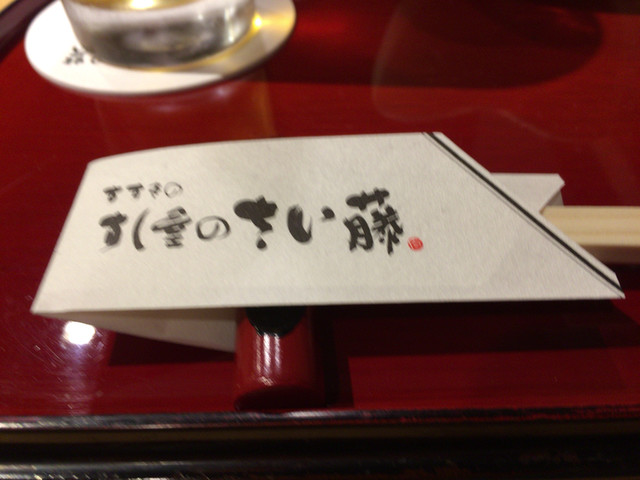 すすきの
すし屋のさい藤